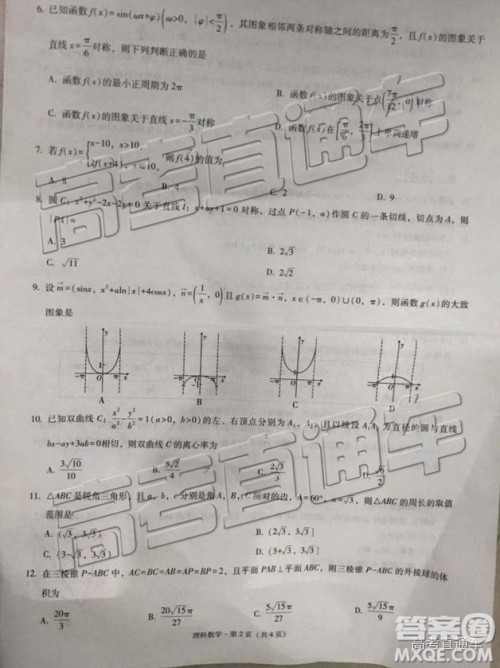 6. 已知函数f(x)=sin(ωx+φ)(ω>0, |φ|<π/2), 其图象相邻两条对称轴之间的距离为π/2, 且f(x)的图象关于
直线x=π/6对称, 则下列判断正确的是
A. 函数f(x)的最小正周期为2π
B. 函数f(x)的图象关于点(7π/12, 0)对称
C. 函数f(x)的图象关于直线x=-π/3对称
D. 函数f(x)在[π/6, 2π/3]上单调递增
7. 若f(x)= x-10, x>10, 则f(4)的值为
A. 8
B. 4
C. 2
D. 9
8. 圆C: x²+y²-2x-2y+0 关于直线l: x+ay+1=0对称, 过点P(-1, a)作圆C的一条切线, 切点为A, 则
|PA|=
A. 3
B. 2√3
C. √11
D. 2√2
9. 设m=(sinx, x²+aln|x|+4cosx), n=(1/x, 0)且g(x)=m·n, x∈(-π, 0)∪(0, π), 则函数g(x)的大致
图象是
A
B
C
D
10. 已知双曲线C: x²/a²-y²/b²=1(a>0, b>0)的左、右顶点分别为A₁, A₂, 且以线段A₁A₂为直径的圆与直线
bx-ay+3ab=0相切, 则双曲线C的离心率为
A. 3√10/10
B. 3√2/4
C. 2√3/3
D. √6/2
11. △ABC是锐角三角形, 且a, b, c分别是角A, B, C对的边, A=60°, a=√3, 则△ABC的周长的取值
范围是
A. (√3, 3√3)
B. (2√3, 3√3]
C. (3-√3, 3√3)
D. (3+√3, 3√3]
12. 在三棱锥P-ABC中, AC=BC=AB=AP=BP=2, 且平面PAB⊥平面ABC, 则三棱锥P-ABC的外接球的体
积为
A. 20π/3
B. 20√15π/27
C. 5√15π/27
D. 5√15π/9
理科数学·第2页（共4页）
高考直通车
高考直通车
答案圈
高考直通车
MXQE.COM